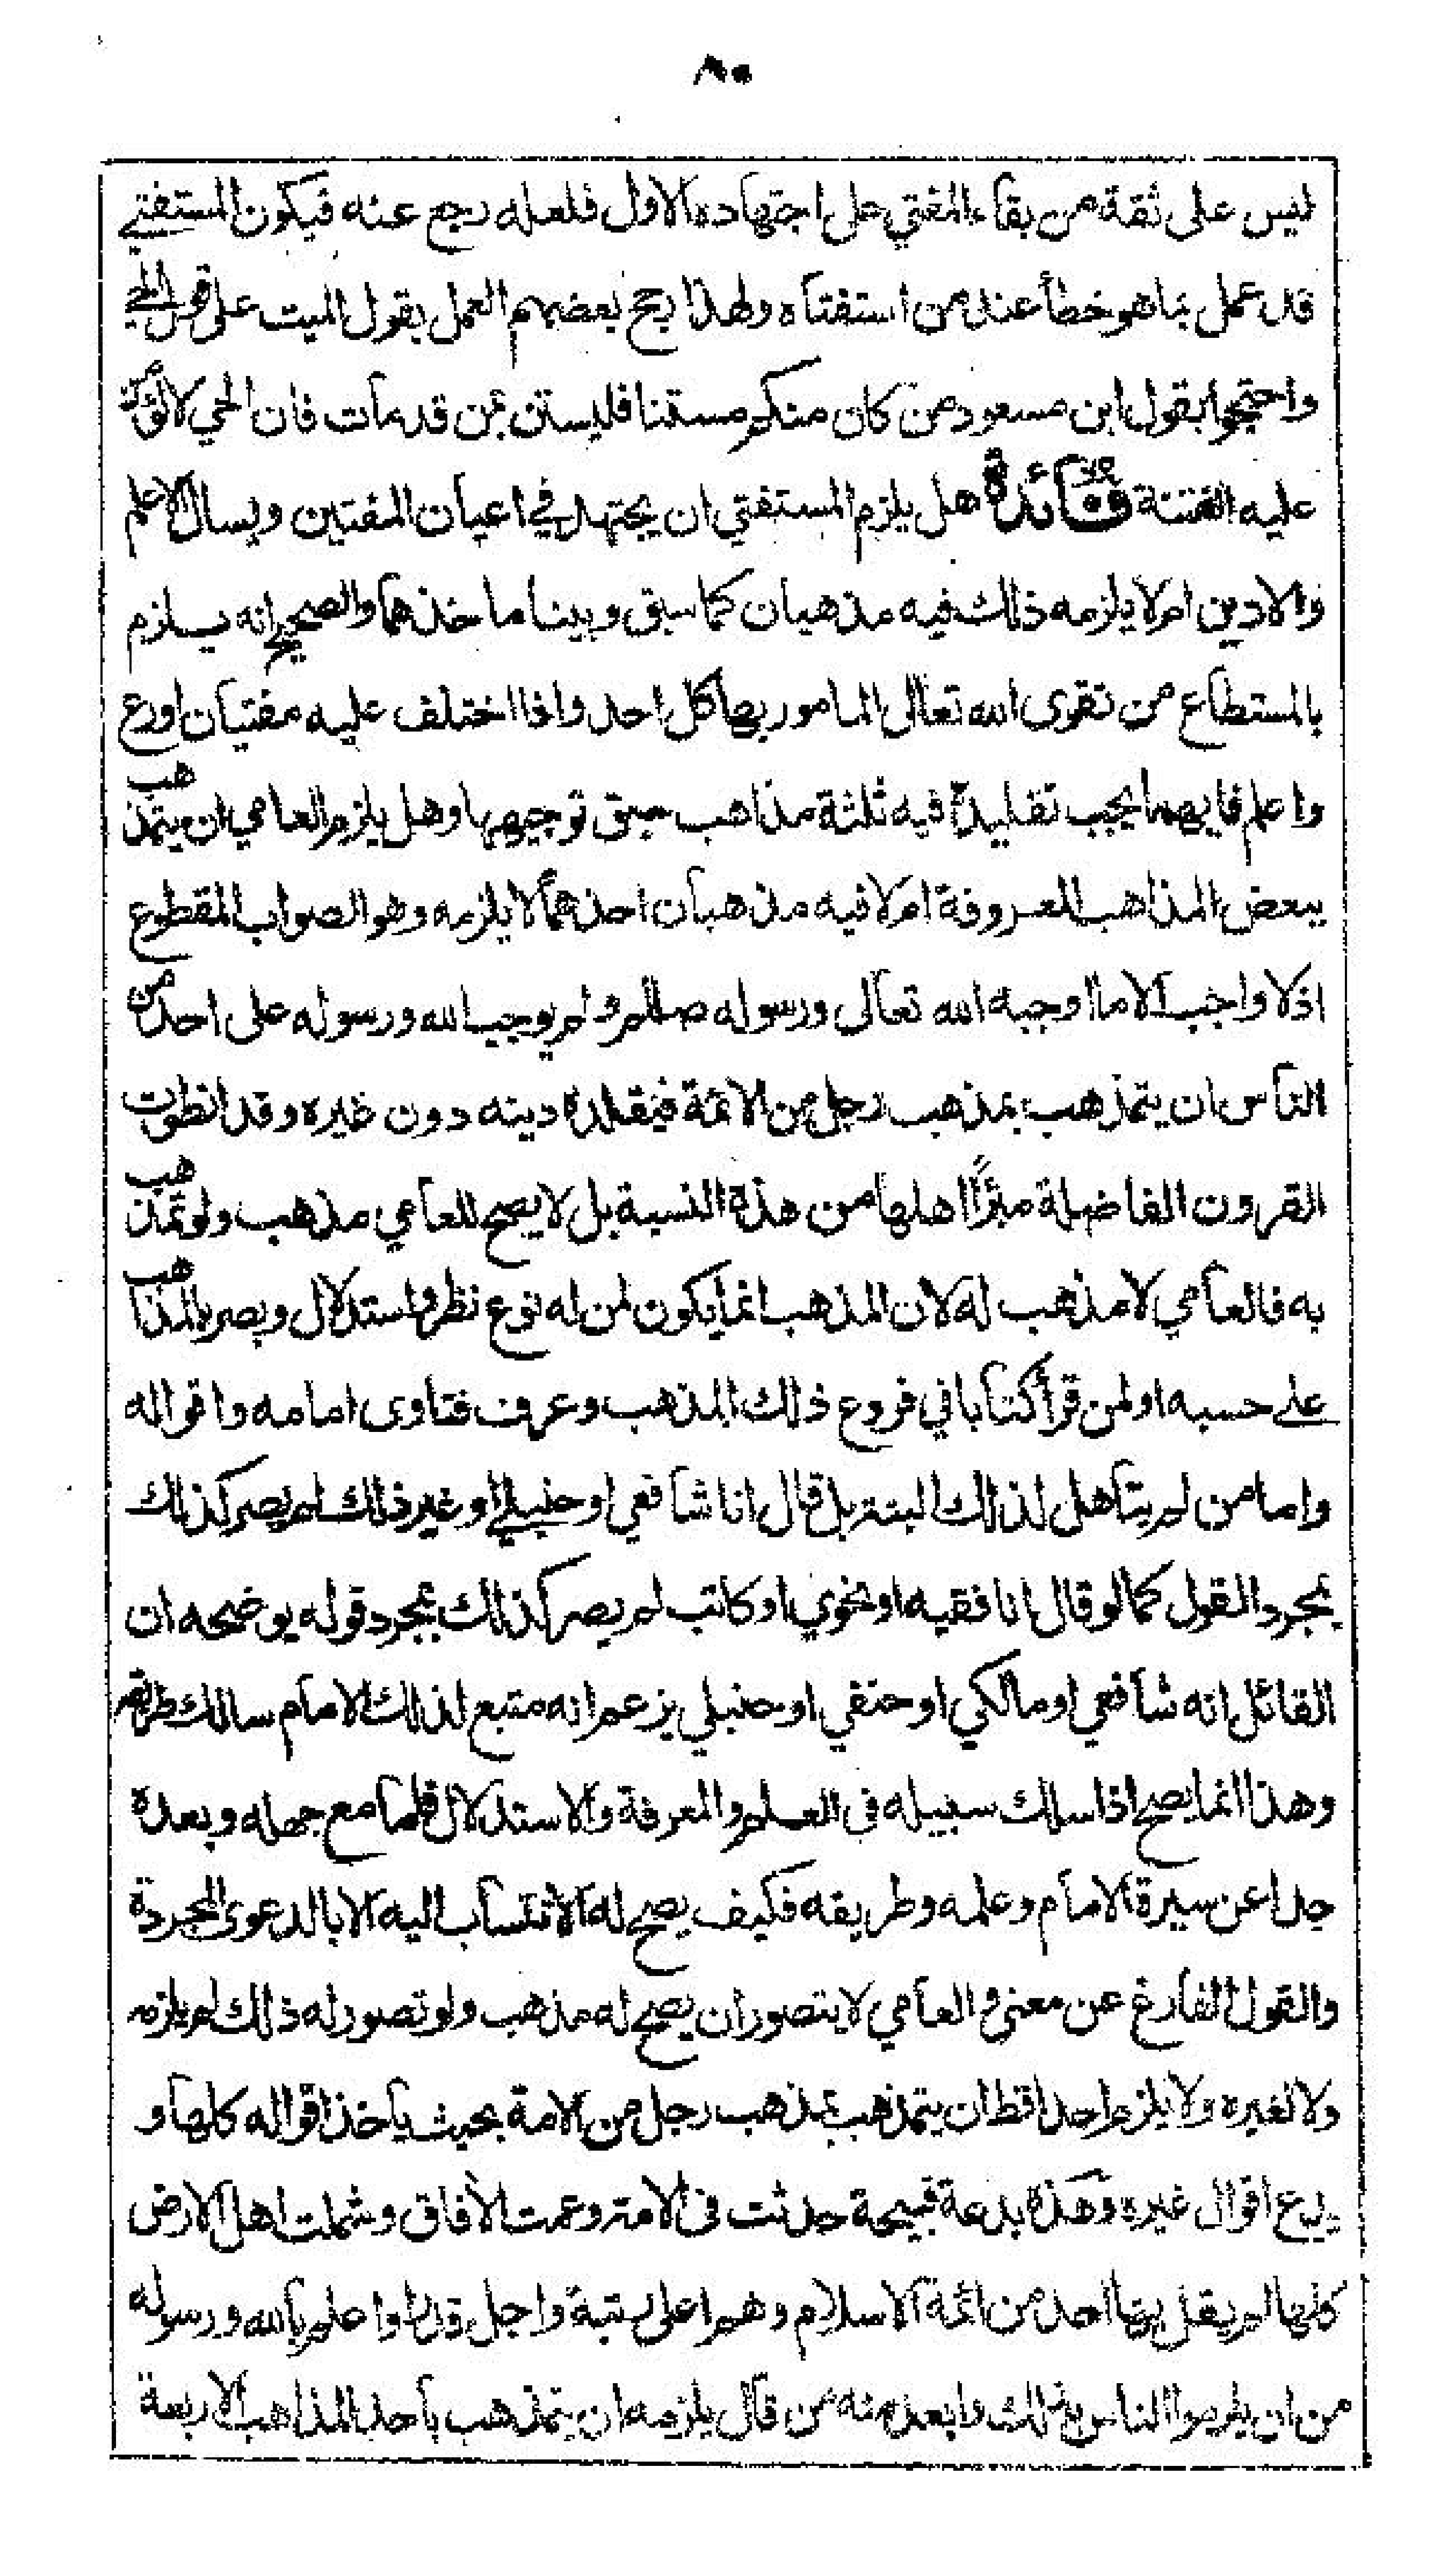 ٨٠
ليس على ثقة من بقاء المفتي على اجتهاده الاول فلعله رجع عنه فيكون المستفتي
قد عمل بما هو خطأ عند من استفتاه ولهذا رجح بعضهم العمل بقول الميت على قول الحي
واحتجوا بقول ابن مسعود من كان منكم مستنا فليستن بمن قد مات فان الحي لا تؤمن
عليه الفتنة فائدة هل يلزم المستفتي ان يجتهد في اعيان المفتين ويسال الاعلم
والادين ام لا يلزمه ذلك فيه مذهبان كما سبق وبينا ماخذهما والصحيح انه يلزم
بالمستطاع من تقوى الله تعالى المامور بها كل احد واذا اختلف عليه مفتيان اورع
واعلم فايهما يجب تقليده فيه ثلثة مذاهب سبق توجيهها وهل يلزم العامي ان يتمذهب
ببعض المذاهب المعروفة ام لا فيه مذهبان احدهما لا يلزمه وهو الصواب المقطوع
اذ لا واجب الا ما اوجبه الله تعالى ورسوله صللم ولم يوجب الله ورسوله على احد من
الناس ان يتمذهب بمذهب رجل من الائمة فيقلده دينه دون غيره وقد انطوت
القرون الفاضلة مبرّأً اهلها من هذه النسبة بل لا يصح للعامي مذهب ولو تمذهب
به فالعامي لا مذهب له لان المذهب انما يكون لمن له نوع نظر واستدلال وبصر بالمذاهب
على حسبه او لمن قرأ كتابا في فروع ذلك المذهب وعرف فتاوى امامه واقواله
واما من لم يتأهل لذلك البتة بل قال انا شافعي او حنبلي او غير ذلك لم يصر كذلك
بمجرد القول كما لو قال انا فقيه او نحوي او كاتب لم يصر كذلك بمجرد قوله يوضحه ان
القائل انه شافعي او مالكي او حنفي او حنبلي يزعم انه متبع لذلك الامام سالك طريقه
وهذا انما يصح اذا سلك سبيله فى العلم والمعرفة والاستدلال فاما مع جهله وبعده
جدا عن سيرة الامام وعلمه وطريقه فكيف يصح له الانتساب اليه الا بالدعوى المجردة
والقول الفارغ عن معنى والعامي لا يتصور ان يصح له مذهب ولو تصور له ذلك لم يلزمه
ولا لغيره ولا يلزم احدا قط ان يتمذهب بمذهب رجل من الامة بحيث يأخذ اقواله كلها و
يدع اقوال غيره وهذه بدعة قبيحة حدثت فى الامة وعمت الآفاق وشملت اهل الارض
كلها لم يقل بها احد من ائمة الاسلام وهم اعلى رتبة واجل قدرا واعلم بالله ورسوله
من ان يلزموا الناس بذلك وابعد منه من قال يلزمه ان يتمذهب بأحد المذاهب الاربعة